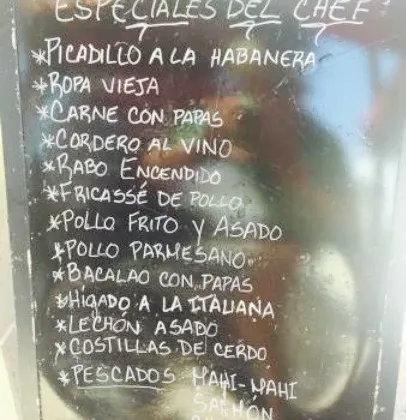 ESPECIALES DEL CHEF
*PICADILLO A LA HABANERA
*ROPA VIEJA
*CARNE CON PAPAS
*CORDERO AL VINO
*RABO ENCENDIDO
*FRICASSÉ DE POLLO
*POLLO FRITO Y ASADO
*POLLO PARMESANO
*BACALAO CON PAPAS
*HIGADO A LA ITALIANA
*LECHÓN ASADO
*COSTILLAS DE CERDO
*PESCADOS MAHI-MAHI
SALMÓN